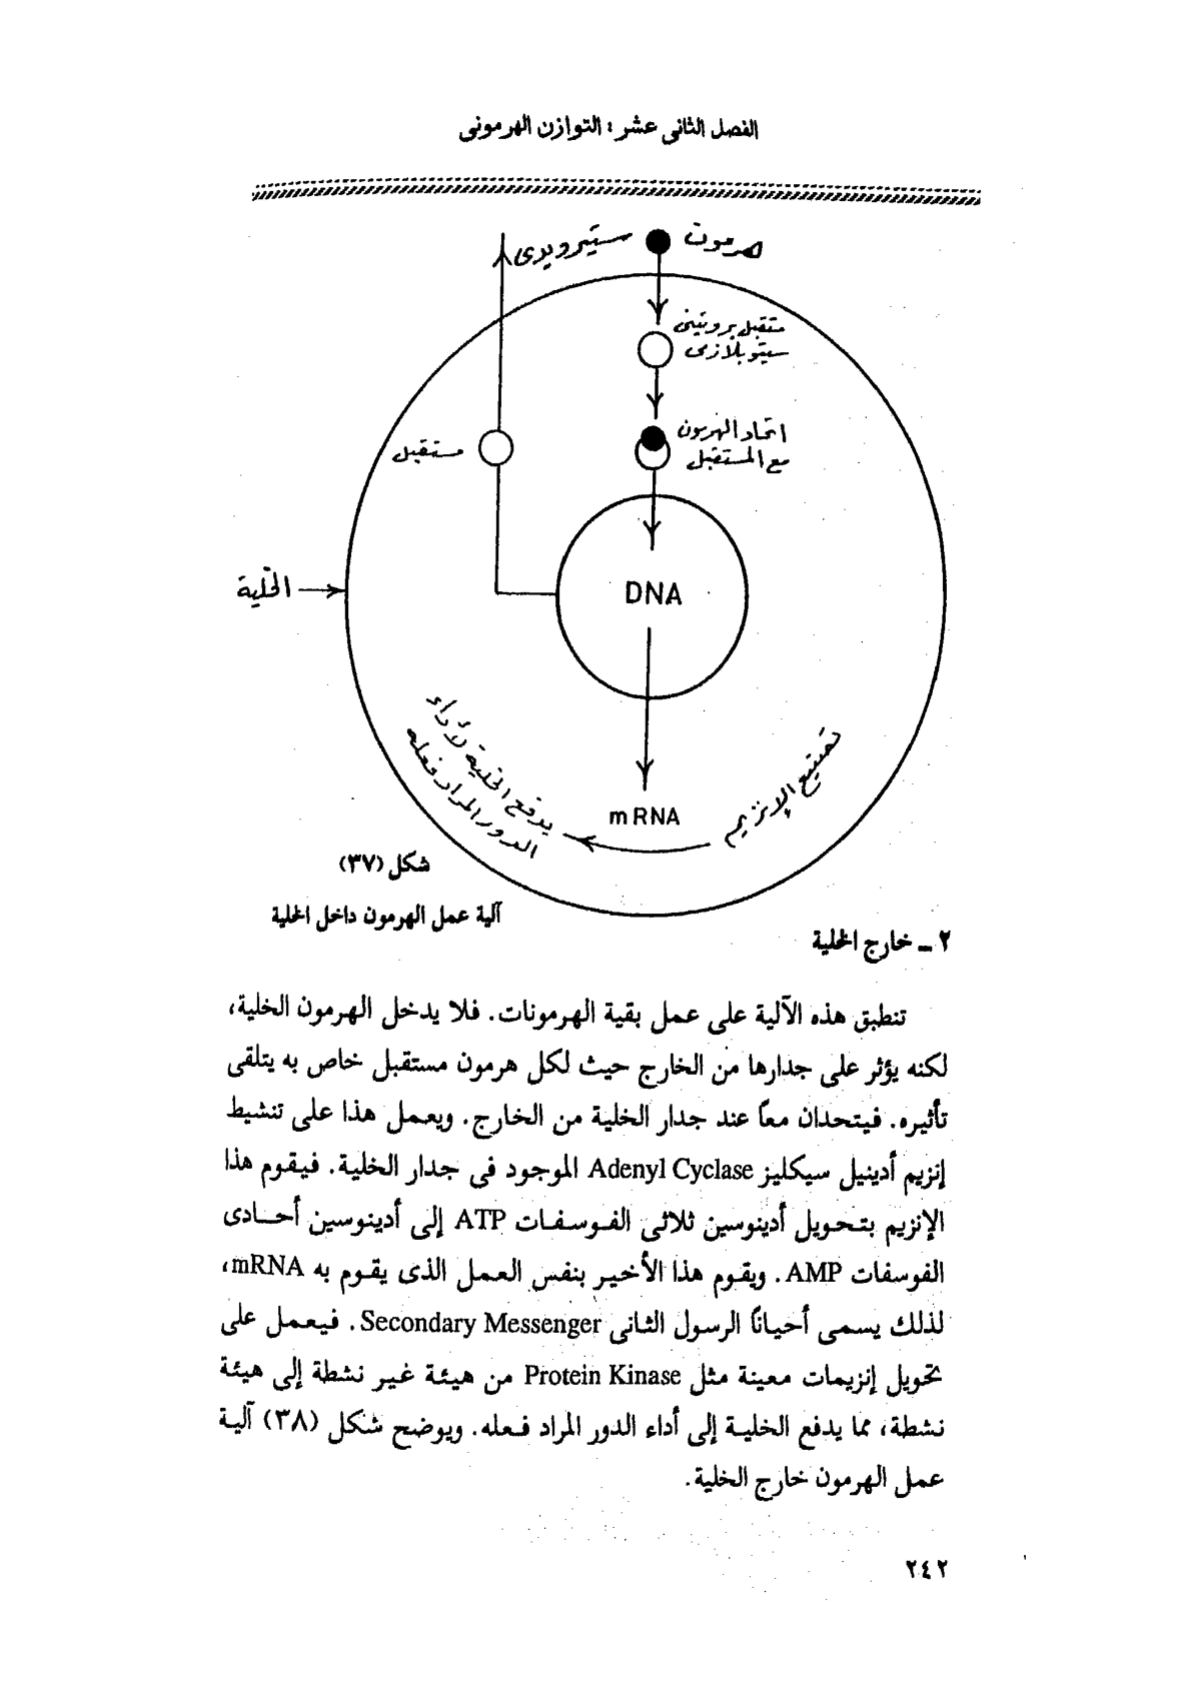 الفصل الثانى عشر : التوازن الهرمونى
هرمون ستيرويدى
متقبل بروتينى
سيتوبلازمى
اتحاد الهرمون
مع المستقبل
مستقبل
الخلية
DNA
mRNA
تصنيع الإنزيم
يدفع الخلية لأداء
الدور المراد فعله
شكل (٣٧)
آلية عمل الهرمون داخل الخلية
٢ ــ خارج الخلية
تنطبق هذه الآلية على عمل بقية الهرمونات. فلا يدخل الهرمون الخلية،
لكنه يؤثر على جدارها من الخارج حيث لكل هرمون مستقبل خاص به يتلقى
تأثيره. فيتحدان معاً عند جدار الخلية من الخارج. ويعمل هذا على تنشيط
إنزيم أدينيل سيكليز Adenyl Cyclase الموجود فى جدار الخلية. فيقوم هذا
الإنزيم بتحويل أدينوسين ثلاثى الفوسفات ATP إلى أدينوسين أحادى
الفوسفات AMP. ويقوم هذا الأخير بنفس العمل الذى يقوم به mRNA،
لذلك يسمى أحيانًا الرسول الثانى Secondary Messenger. فيعمل على
تحويل إنزيمات معينة مثل Protein Kinase من هيئة غير نشطة إلى هيئة
نشطة، مما يدفع الخلية إلى أداء الدور المراد فعله. ويوضح شكل (٣٨) آلية
عمل الهرمون خارج الخلية.
٢٤٢